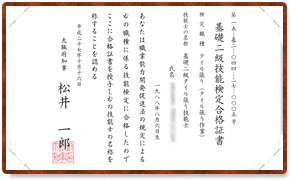 第一五-基二-〇四四-二七-〇〇〇五号
基礎二級技能検定合格証書
検定職種 タイル張り(タイル張り作業)
技能士の名称 基礎二級タイル張り技能士
氏名
一九八八年八月六日生
あなたは職業能力開発促進法の規定による
右の職種に係る技能検定に合格したので
ここに合格証書を授与し右の技能士の名称を
称することを認める
平成二十七年十月十六日
大阪府知事 松井 一郎